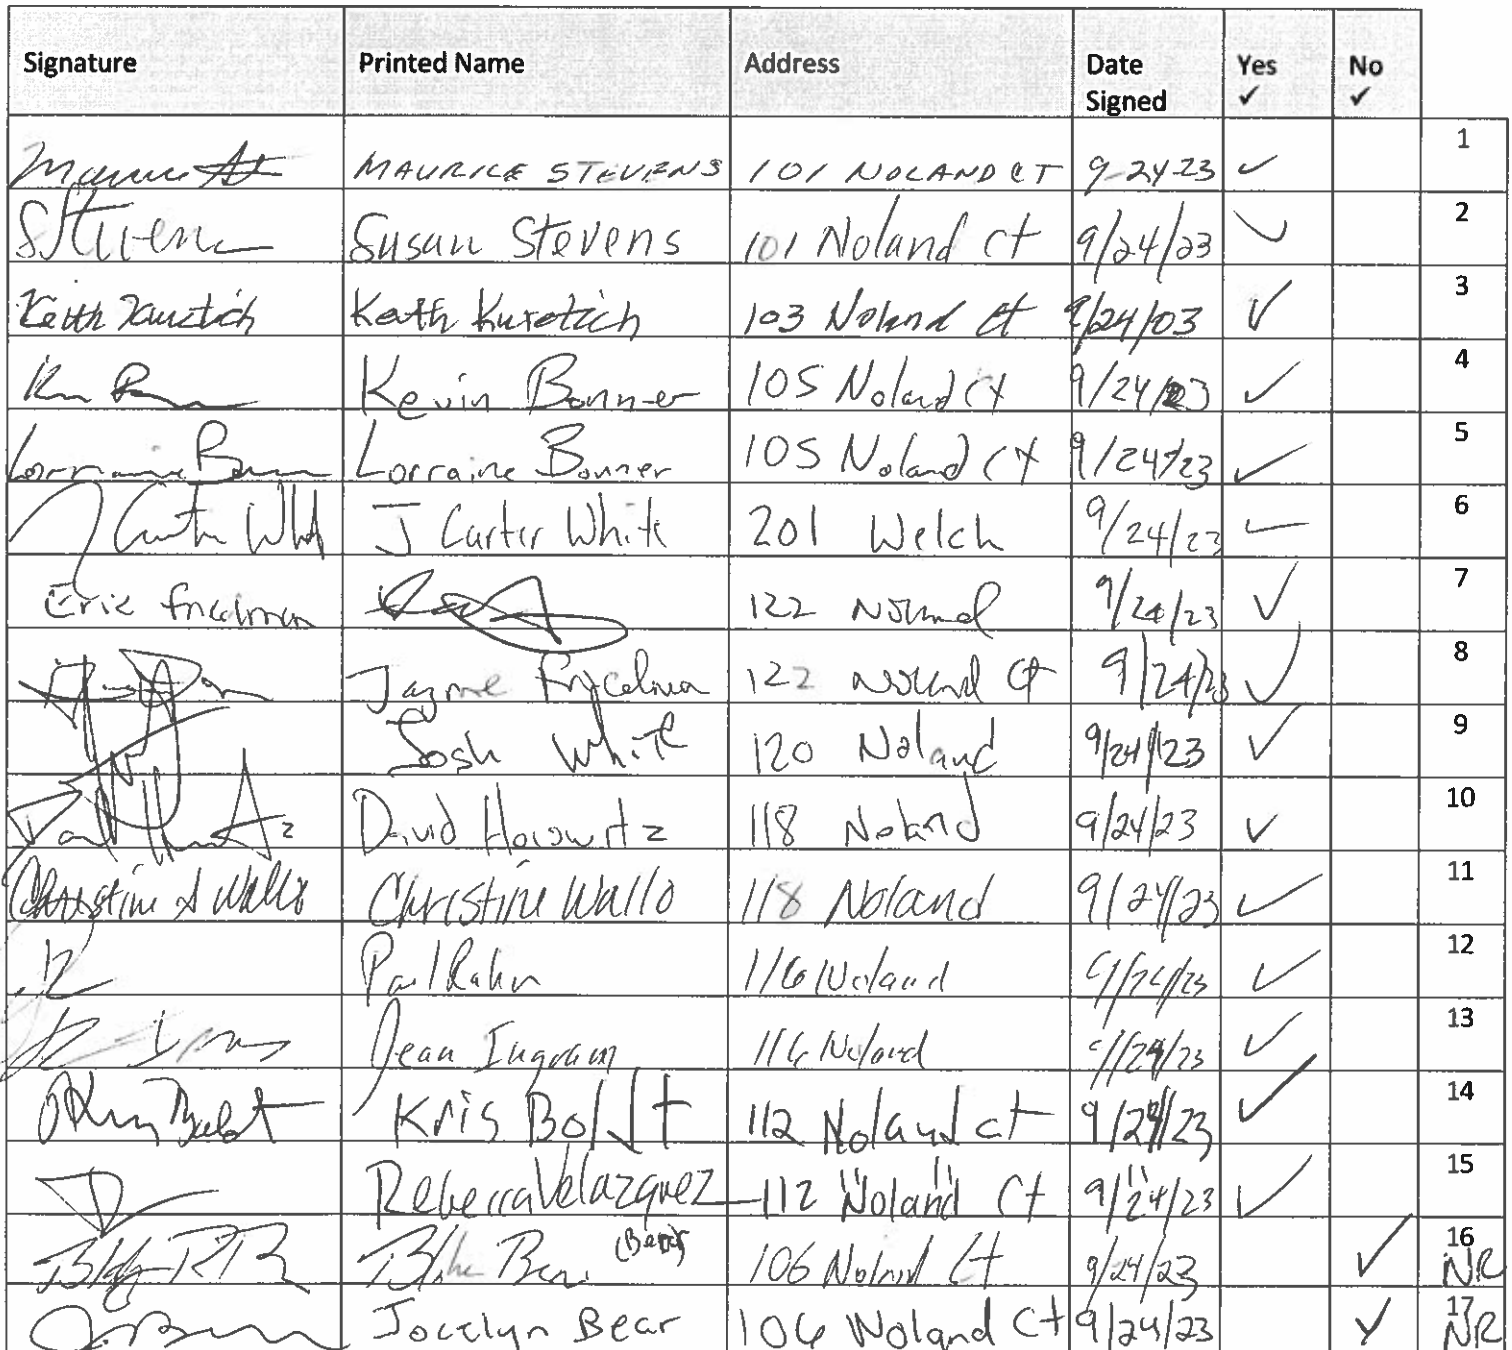 Signature Printed Name Address Date Signed Yes ✓ No ✓
MAURICE STEVENS 101 NOLAND CT 9-24-23 ✓ 1
SStevens Susan Stevens 101 Noland Ct 9/24/23 ✓ 2
Keith Kurotich 103 Noland Ct 9/24/03 ✓ 3
Kevin Bonner 105 Noland Ct 9/24/23 ✓ 4
Lorraine Bonner Lorraine Bonner 105 Noland Ct 9/24/23 ✓ 5
J Carter White J Carter White 201 Welch 9/24/23 ✓ 6
Eric Friedman 122 Noland 9/24/23 ✓ 7
Jayme Friedman 122 Noland Ct 9/24/23 ✓ 8
Josh White 120 Noland 9/24/23 ✓ 9
David Horowitz 118 Noland 9/24/23 ✓ 10
Christine A Wallo Christine Wallo 118 Noland 9/24/23 ✓ 11
Paul Rahn 116 Noland 9/24/23 ✓ 12
Jean Ingram 116 Noland 9/24/23 ✓ 13
Kris Boldt 112 Noland ct 9/24/23 ✓ 14
Rebecca Velazquez 112 Noland Ct 9/24/23 ✓ 15
Blake Bear (Bear) 106 Noland Ct 9/24/23 ✓ 16 NR
J. Bear Jocelyn Bear 106 Noland Ct 9/24/23 ✓ 17 NR